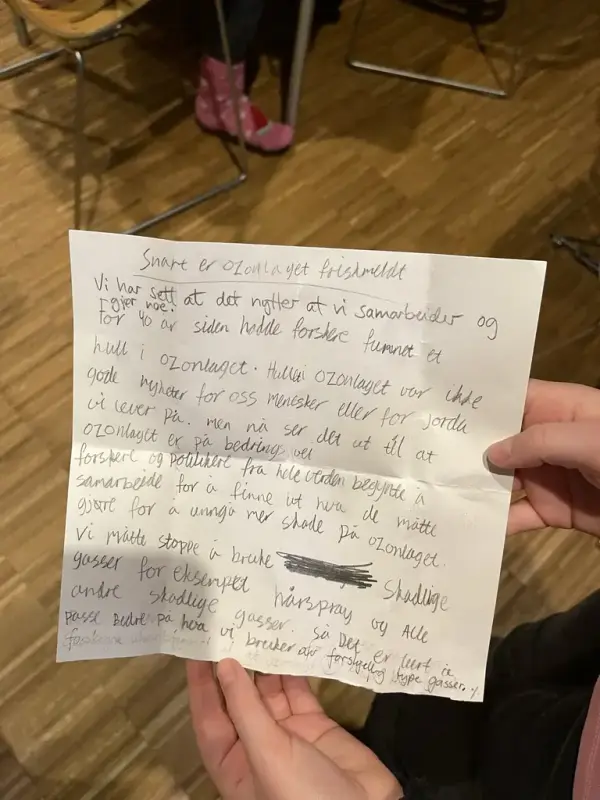 Snart er ozonlaget friskmeldt
Vi har sett at det nytter at vi samarbeider og
gjør noe.
For 40 år siden hadde forskere funnet et
hull i ozonlaget. Hullet i ozonlaget var ikke
gode nyheter for oss menesker eller for jorda
vi lever på. men nå ser det ut til at
ozonlaget er på bedrings vei
forskere og politikere fra hele verden begynte å
samarbeide for å finne ut hva de måtte
gjøre for å unngå mer skade på ozonlaget.
Vi måtte stoppe å bruke skadlige
gasser for eksempel hårspray og Alle
andre skadlige gasser. så Det er lurt å
passe Bedre på hva vi bruker av forskjellig type gasser.